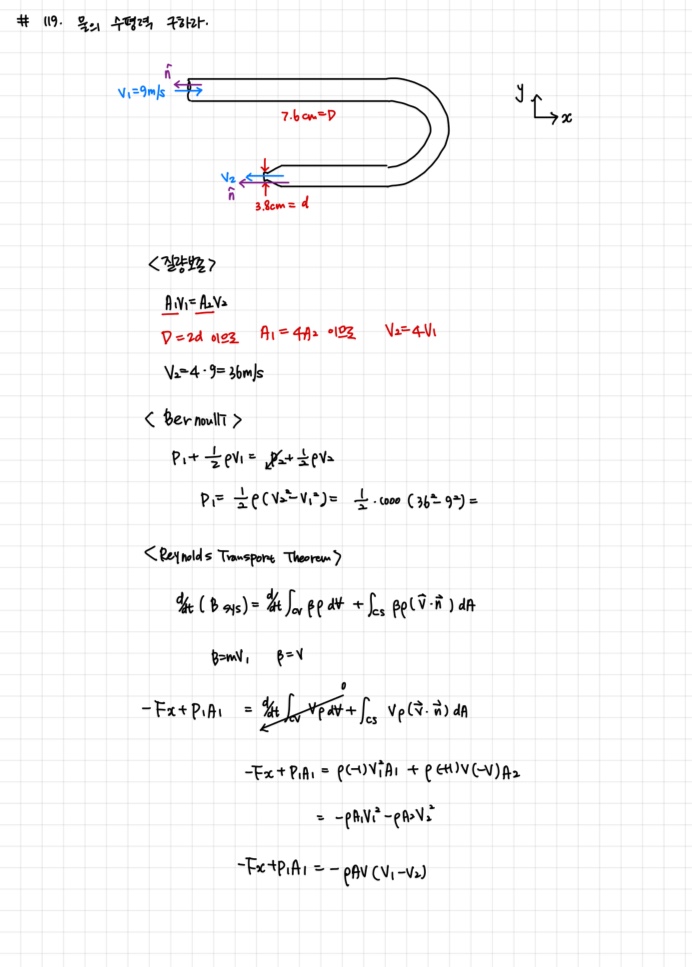 # 119. 물의 수평력 구하라.
n̂
V₁=9m/s
y
x
7.6cm=D
V₂
n̂
3.8cm=d
<질량보존>
A₁V₁=A₂V₂
D=2d 이므로 A₁=4A₂ 이므로 V₂=4V₁
V₂=4·9=36m/s
<Bernoulli>
P₁+½ρV₁=P₂+½ρV₂
P₁=½ρ(V₂²-V₁²)=½·1000(36²-9²)=
<Reynolds Transport Theorem>
d/dt(B sys)=d/dt∫cv βρdV+∫cs βρ(V⃗·n⃗)dA
B=mV, β=V
-Fx+P₁A₁ = d/dt∫cv Vρ dV+∫cs Vρ(V⃗·n⃗)dA
0
-Fx+P₁A₁=ρ(-1)V₁²A₁+ρ(+1)V(-V)A₂
=-ρA₁V₁²-ρA₂V₂²
-Fx+P₁A₁=-ρAV(V₁-V₂)